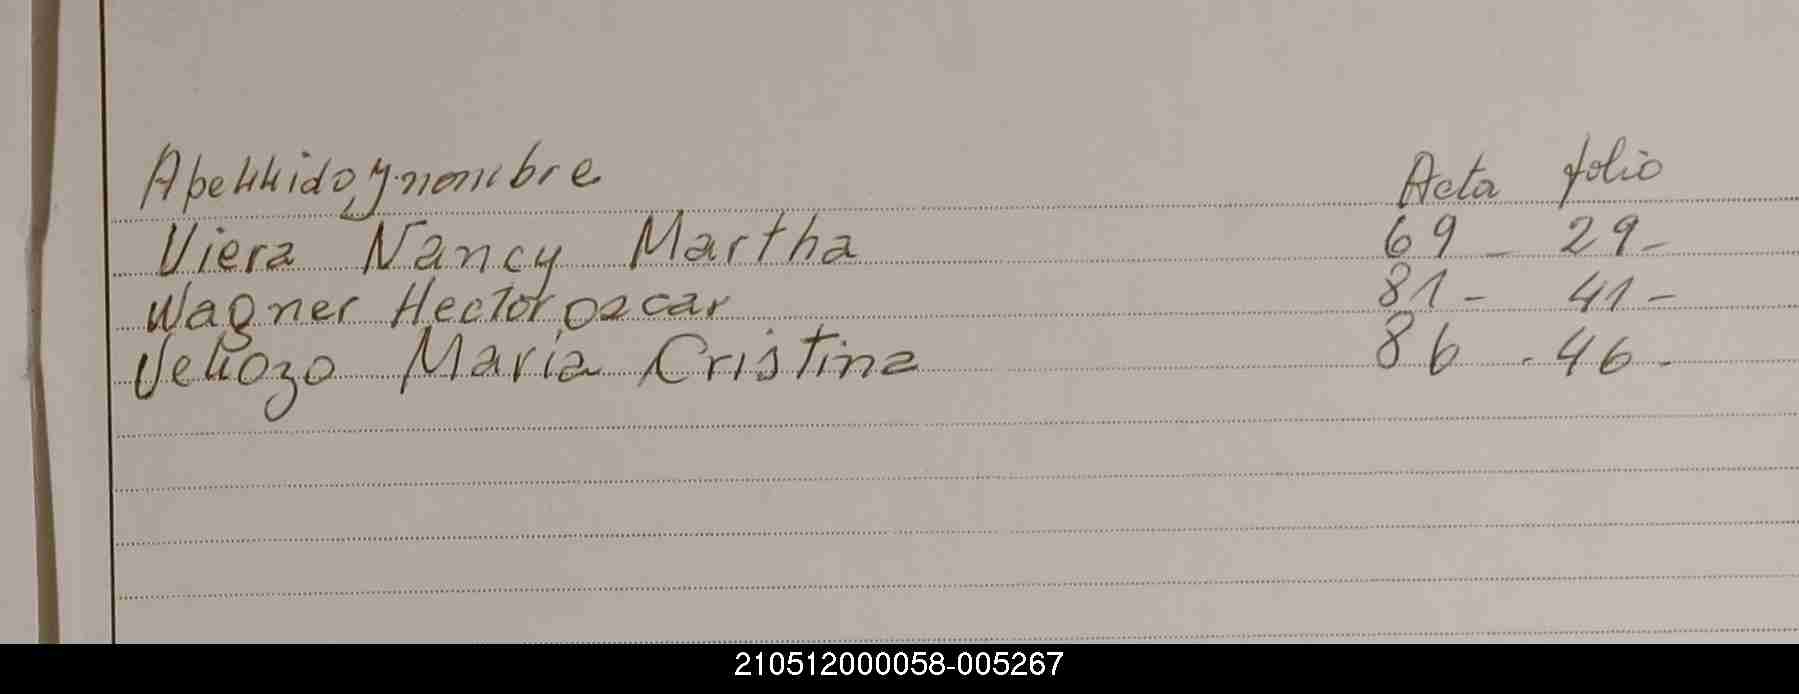 Apellido, y nombre Acta folio
Viera Nancy Martha 69 - 29-
Wagner Hector oscar 81 - 41-
Vellozo Maria Cristina 86 . 46-
210512000058-005267